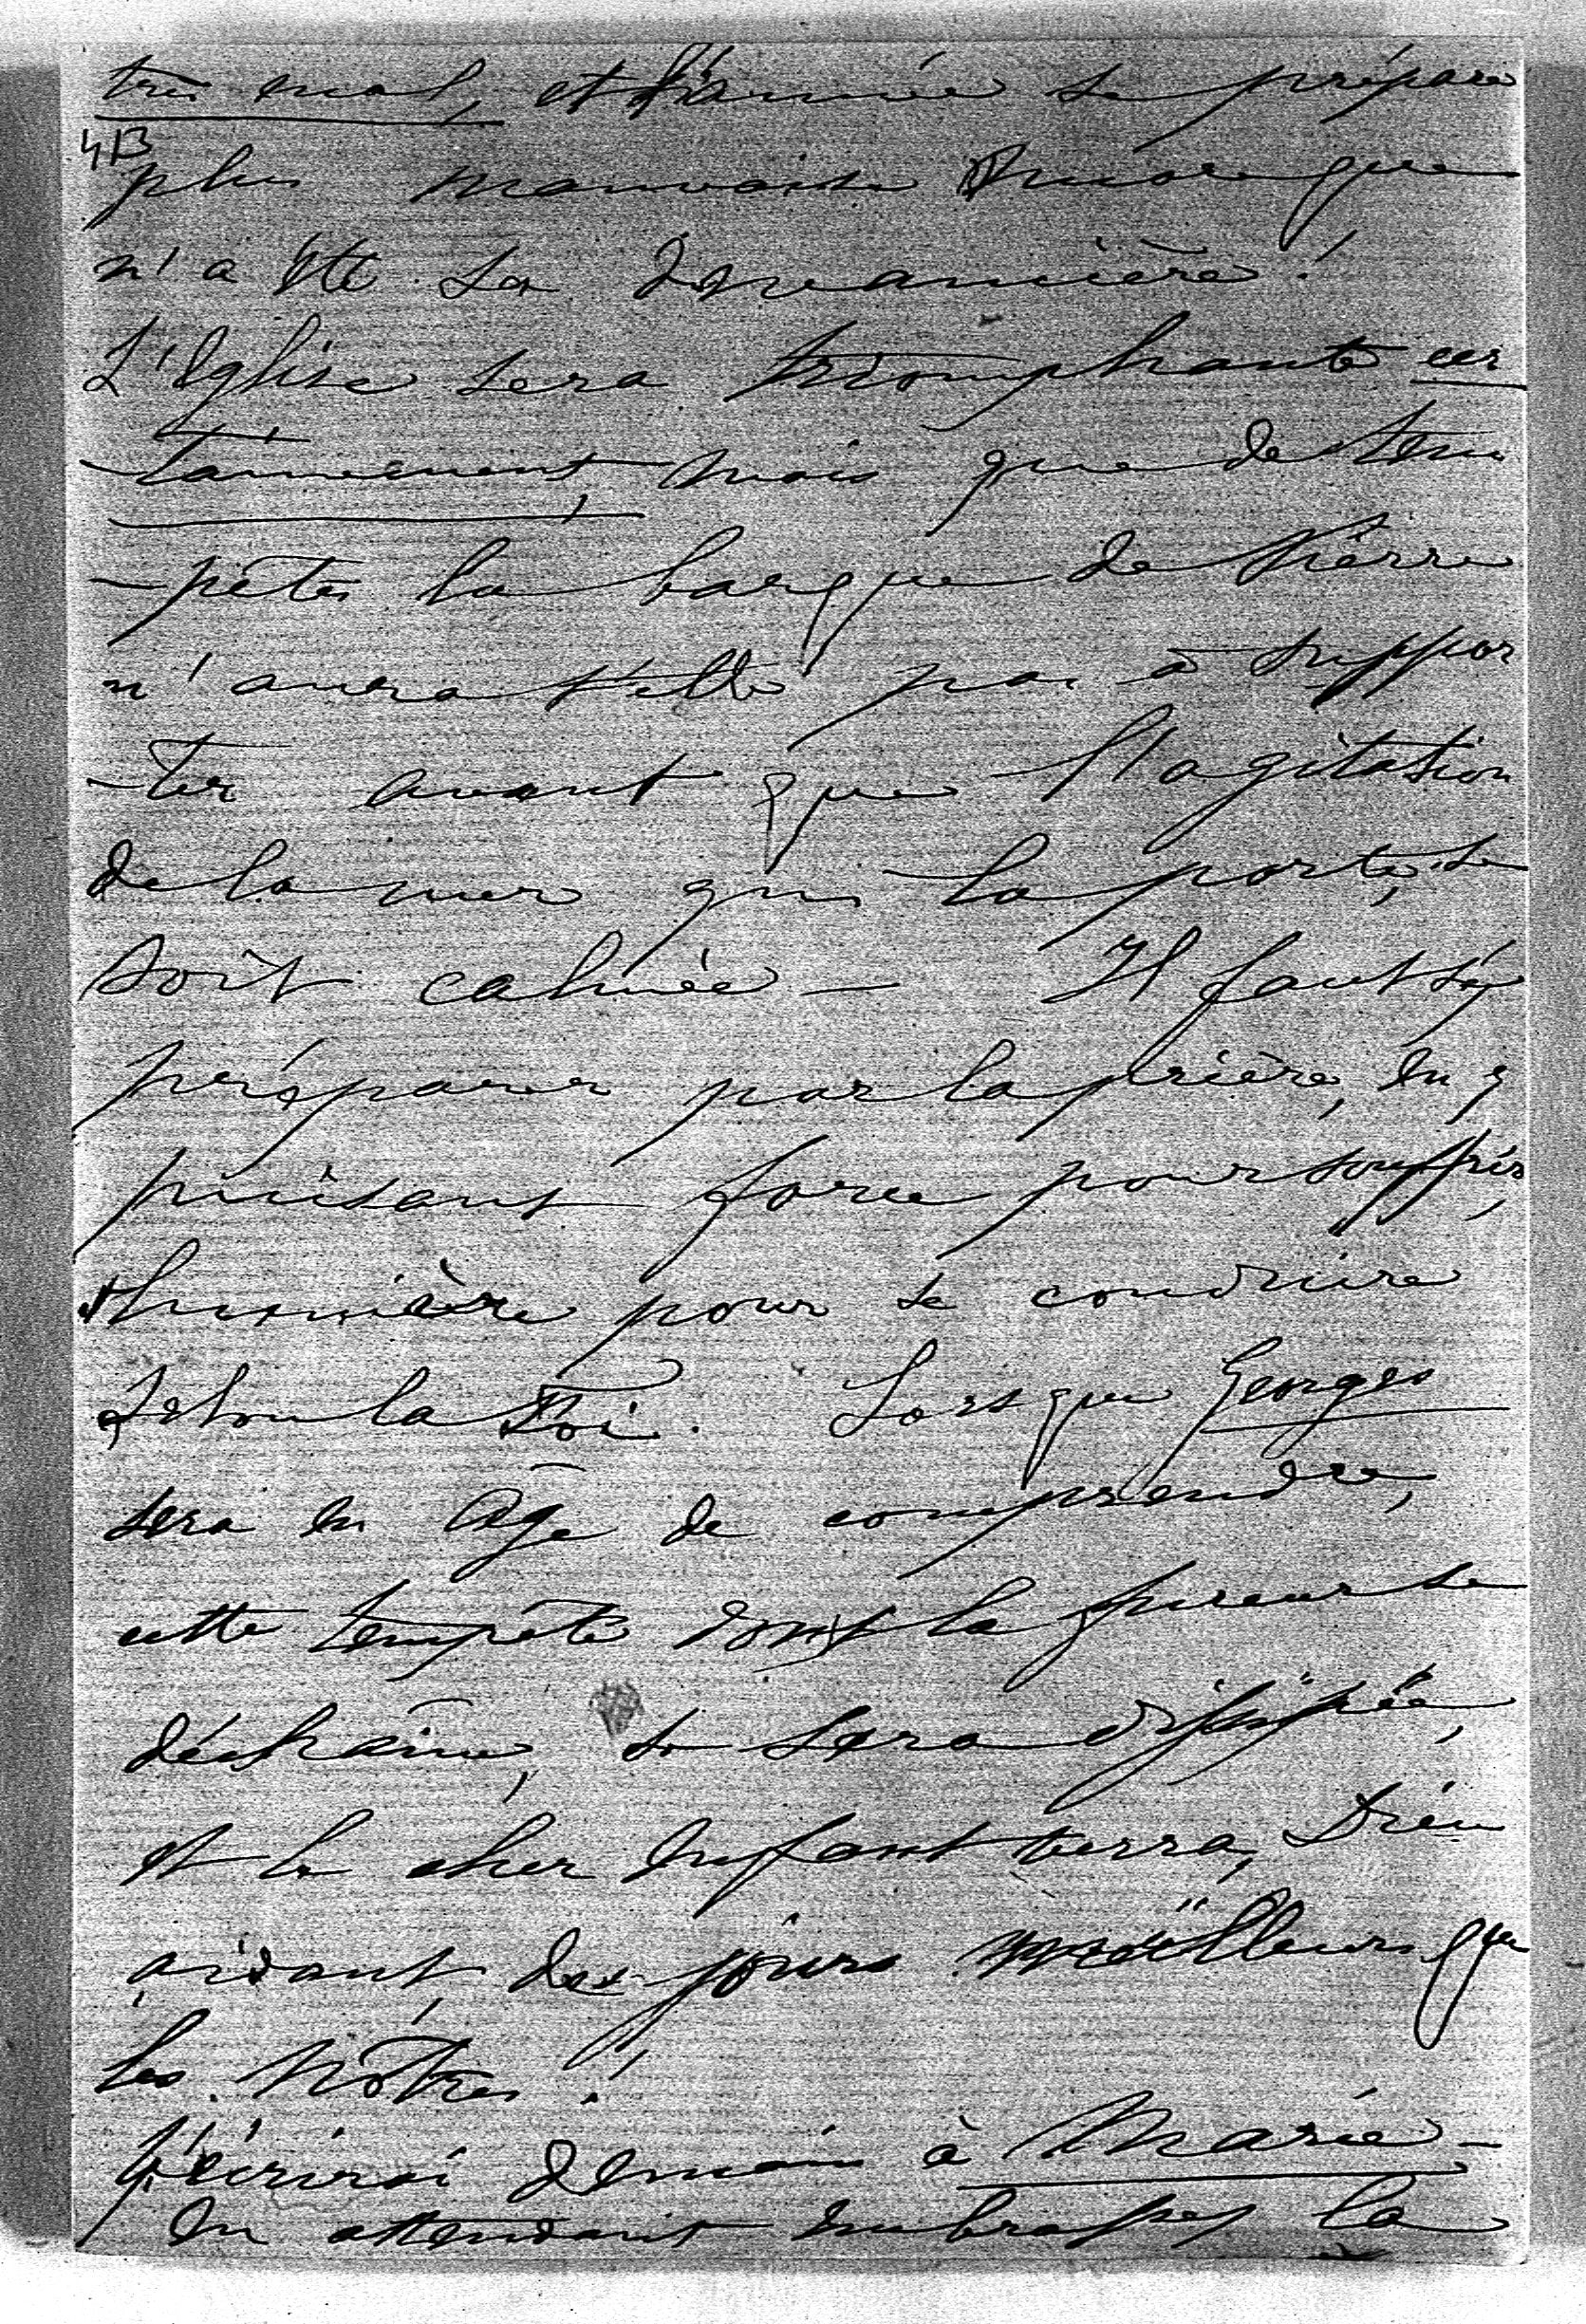 très mal, et l'année se prépare
413
plus mauvaise encore que
n'a été la devancière !
L'Eglise sera triomphante cer
-tainement, mais que de tem
-pêtes la barque de Pierre
n'aura t'elle pas à suppor
-ter avant que l'agitation
de la mer qui la porte, se
soit calmée – Il faut s'y
préparer par la prière, en y
puisant force pour souffrir,
lumière pour se conduire
selon la Foi. Lorsque Georges
sera en âge de comprendre,
cette tempête dont la fureur se
déchaîne, se sera dissipée,
et le cher enfant verra, Dieu
aidant, des jours meilleurs que
les nôtres !
J'écrirai demain à Marie –
En attendant embrassez la